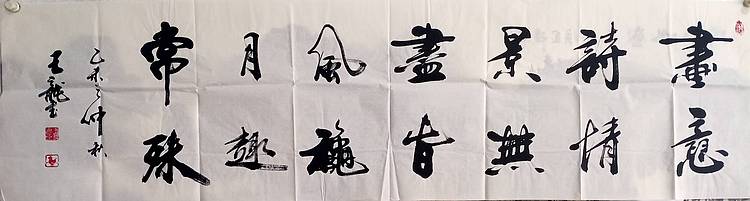 畫意
詩情
景無
盡春
風龝
月趣
常殊
乙未之仲秋
王